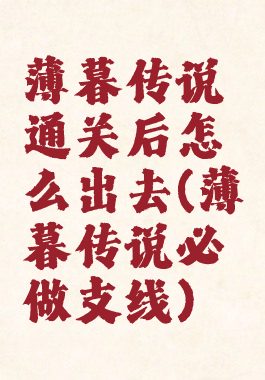 薄暮传说
通关后怎
么出去(薄
暮传说必
做支线)